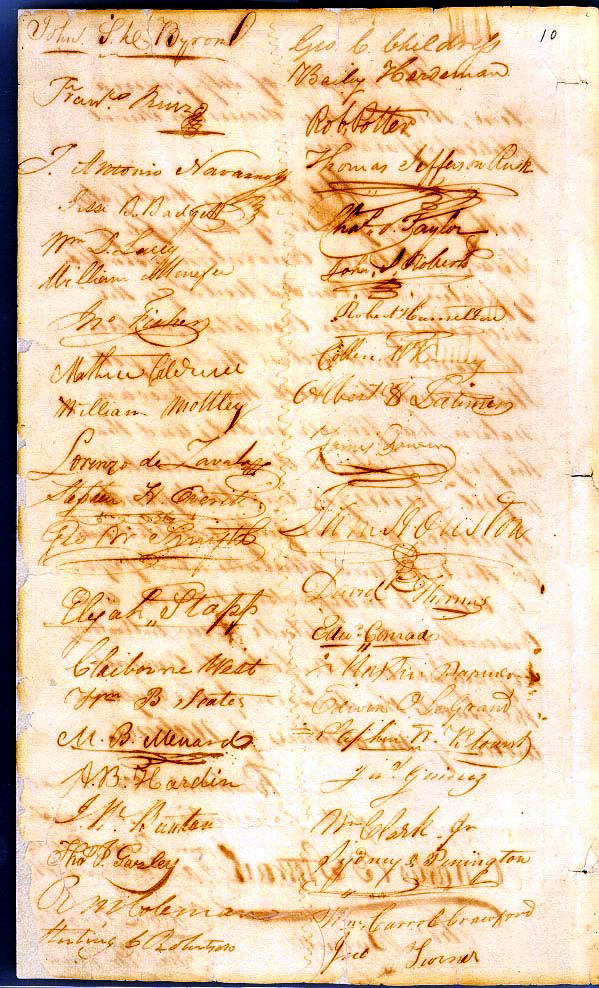 John. S. D. Byrom
Frans. Ruiz
J. Antonio Navarro
Jesse B. Badgett
Wm D. Lacey
William Menefee
Jno Fisher
Mathew Caldwell
William Mottley
Lorenzo de Zavala
Stephen H. Everitt
Geo W Smyth
Elijah Stapp
Claiborne West
Wm B Scates
M. B. Menard
A. B. Hardin
J. W. Bunton
Thos J. Gazley
R M Coleman
Sterling C Robertson
10
Geo C Childress
Baily Hardeman
Rob. Potter
Thomas Jefferson Rusk
Chas. S. Taylor
John S. Roberts
Robert Hamilton
Collin McKinney
Albert H Latimer
James Power
Sam Houston
David Thomas
Edwd Conrad
Martin Parmer
Edwin O LeGrand
Stephen W. Blount
Jas Gaines
Wm Clark Jr
Sydney O Penington
Wm Carrol Crawford
Jno Turner